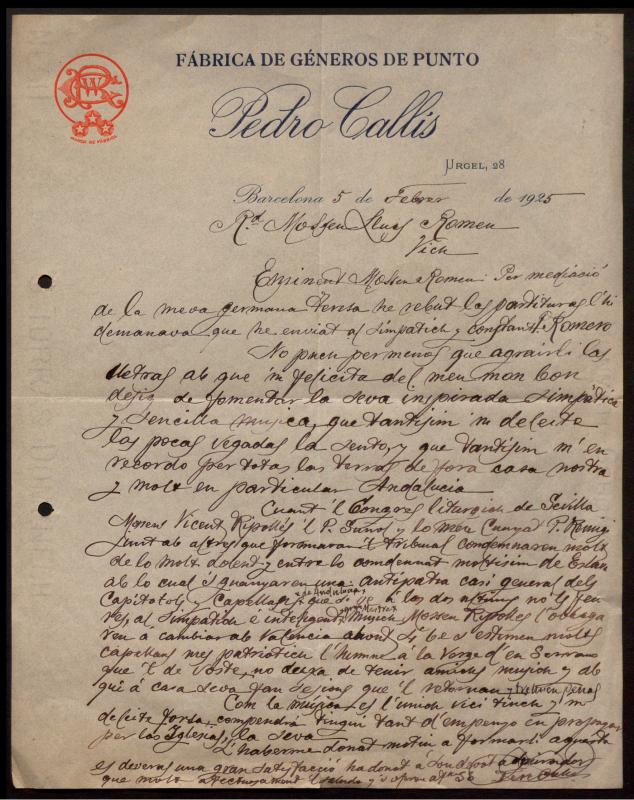 FÁBRICA DE GÉNEROS DE PUNTO
Pedro Callís
URGEL, 28
MARCA DE FÁBRICA
Barcelona 5 de Febrer de 1925
R.d Mossen Lluis Romeu
Vich
Eminent Mossen Romeu: Per mediació
de la meva germana Teresa he rebut las partituras l'hi
demanava que he enviat al simpatich y constant Romero
No puch per menos que agrairli las
lletras ab que 'm felicita del meu mon bon
desig de fomentar la seva inspirada simpática
y sencilla musica, que tantisim m deleita
las pocas vegadas la sento, y que tantisim m' en
recordo per totas las terras de fora casa nostra
y molt en particular Andalucia
Cuant 'l Congres liturgich de Sevilla
Mossens Vicent Ripollés 'l P. Suñol y lo meu Cunyat P. Remigi
junt ab altres que formaran 'l tribual condemnaren molt
de lo molt dolent, y entre lo condemnat moltisim de Eslava
ab lo cual s guanyaren una antipatia casi general dels
Capitols y Capellans de Andalucia, que si be á los dos no 'ls
al simpátich é inteligent Mossen Ripollés l'obliga
ren a cambiar ab Valencia ahont si be s estimen molts
capellans mes patriotich l'himne á la Verge d'en Serrano
que 'l de vosté, no deixa de tenir amichs musichs y ab
qui á casa seva fan sesions que 'l retornan
Com la música es l'unich vici tinch y m
deleita forsa, compendrá tingui tant d'impenyo en propagar
per las Iglesias, la seva
L'haberme donat motiu a formarli aquesta
es deveras una gran satisfacció ha donat á son devot admirador
que molt afectuosament 'l saluda y s